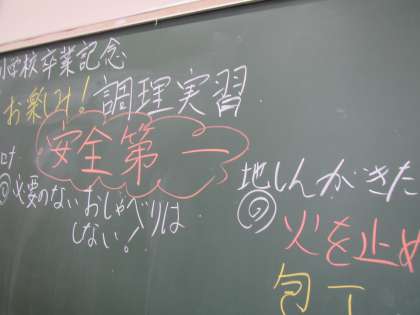 小学校卒業記念
お楽しみ!調理実習
安全第一
必要のないおしゃべりは
しない。!
地しんがきた
火を止め
包丁